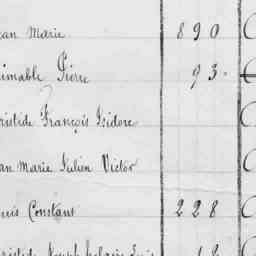 ean Marie 890
imable Pierre 93.
ristide François Isidore
an Marie Julien Victor
uis Constant 228
ristide Joseph